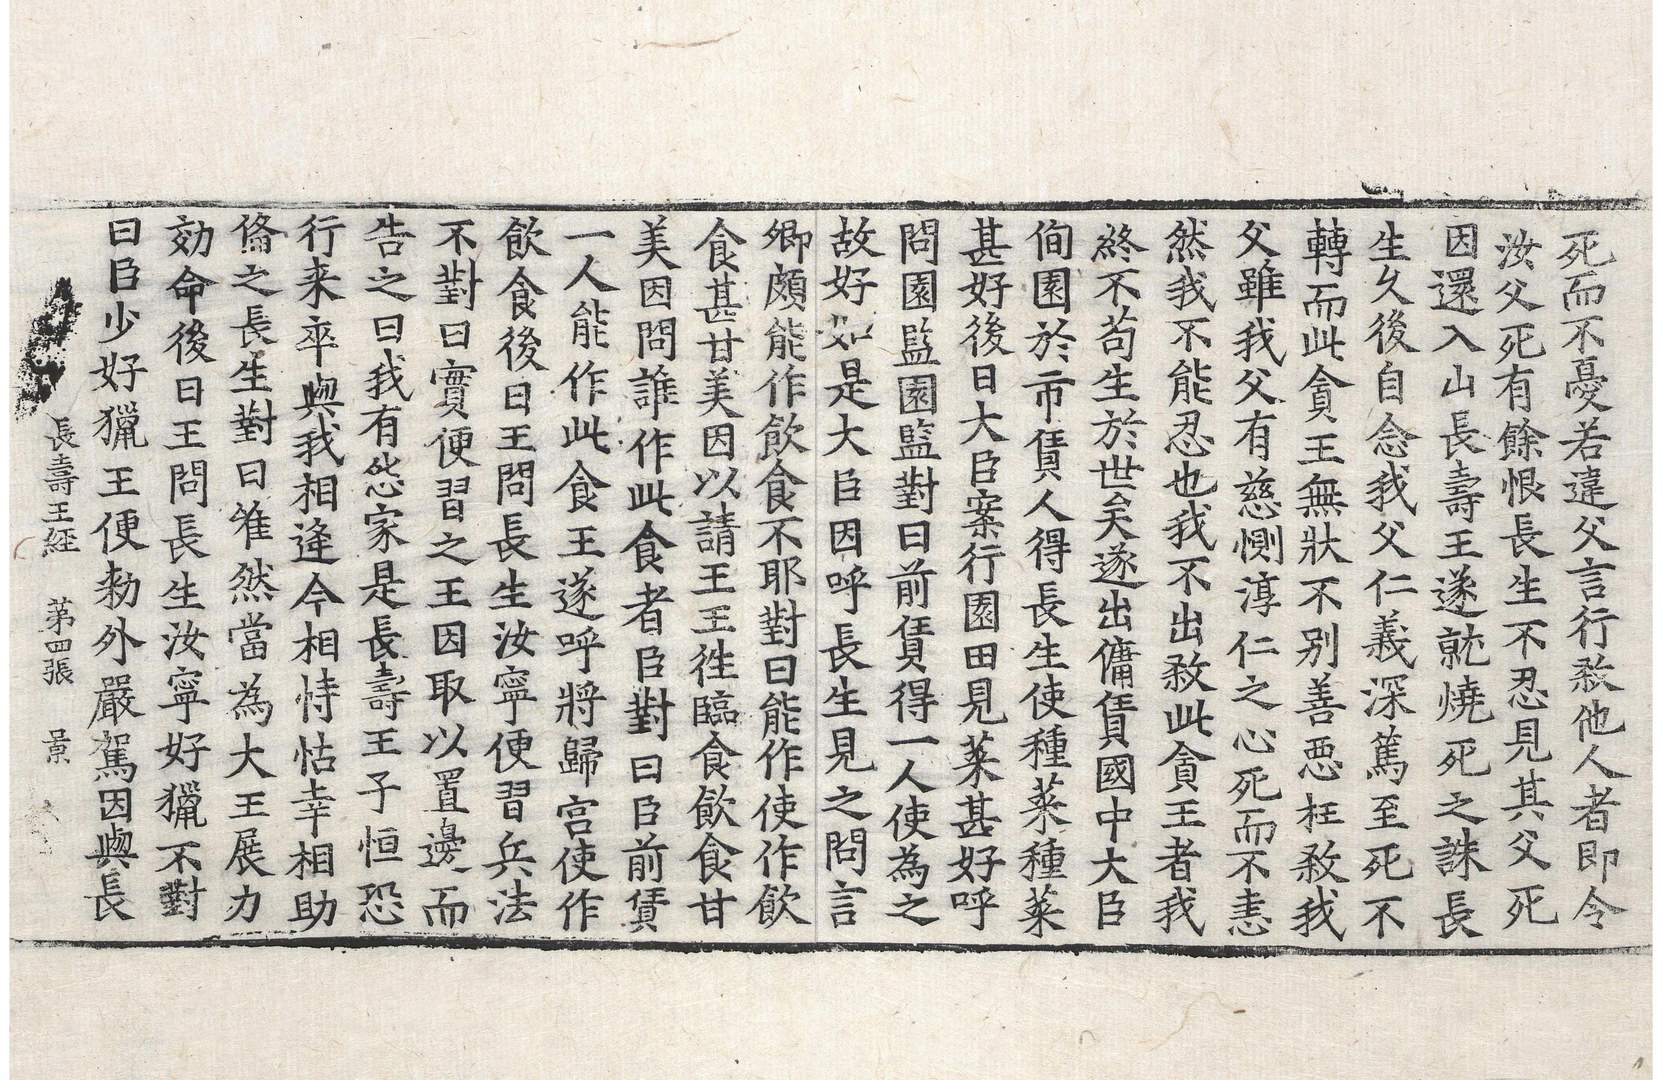 死而不憂若違父言行煞他人者即令
汝父死有餘恨長生不忍見其父死
因還入山長壽王遂就燒死之誅長
生久後自念我父仁義深篤至死不
轉而此貪王無狀不別善惡枉煞我
父雖我父有慈惻淳仁之心死而不恚
然我不能忍也我不出煞此貪王者我
終不苟生於世矣遂出傭賃國中大臣
佝園於市賃人得長生使種菜種菜
甚好後日大臣案行園田見菜甚好呼
問園監園監對曰前賃得一人使為之
故好如是大臣因呼長生見之問言
卿頗能作飲食不耶對曰能作使作飲
食甚甘美因以請王王往臨食飲食甘
美因問誰作此食者臣對曰臣前賃
一人能作此食王遂呼將歸宮使作
飲食後日王問長生汝寧便習兵法
不對曰實便習之王因取以置邊而
告之曰我有怨家是長壽王子恒恐
行来卒與我相逢今相恃怙幸相助
俻之長生對曰唯然當為大王展力
効命後日王問長生汝寧好獵不對
曰臣少好獵王便勑外嚴駕因與長
長壽王経 第四張 景